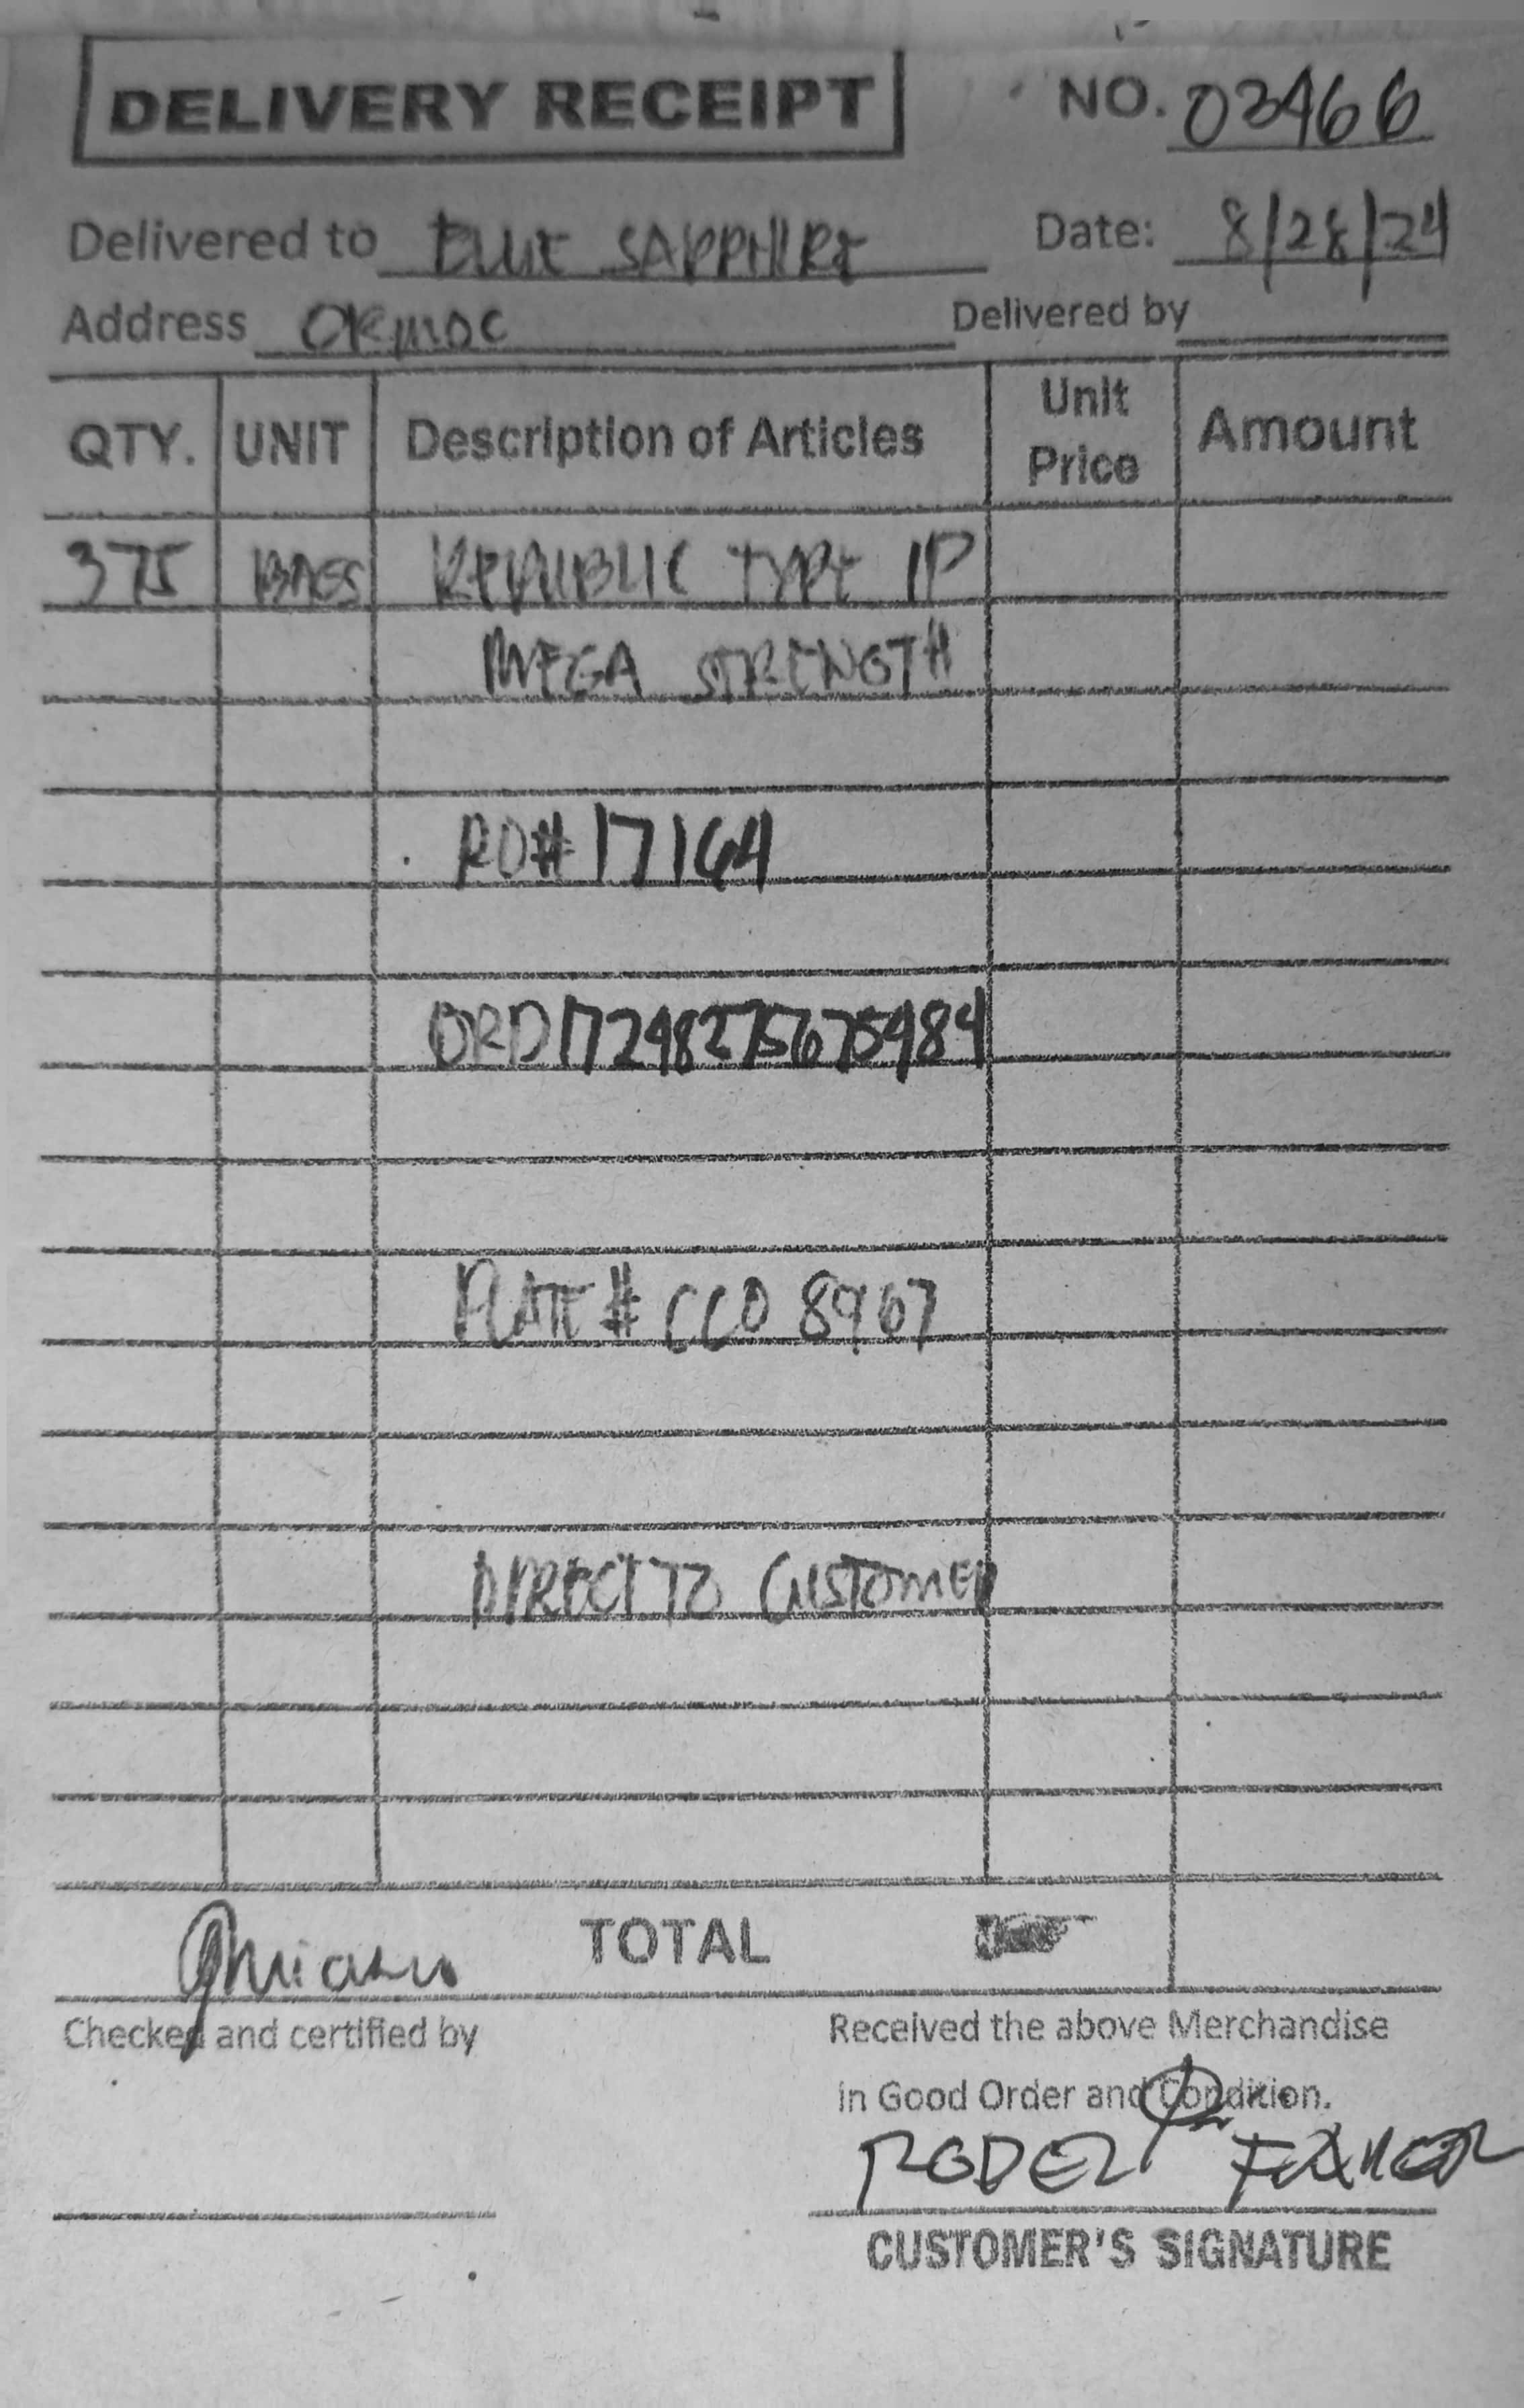 DELIVERY RECEIPT NO. 03466
Delivered to BLUE SAPPHIRE Date: 8/28/24
Address ORMOC Delivered by
QTY. UNIT Description of Articles Unit Price Amount
375 BAGS REPUBLIC TYPE 1P
MEGA STRENGTH
RO# 17164
ORD1729827567598​4
PLATE# CCO 8967
DIRECT TO CUSTOMER
TOTAL
Checked and certified by
Received the above Merchandise
in Good Order and Condition.
CUSTOMER'S SIGNATURE